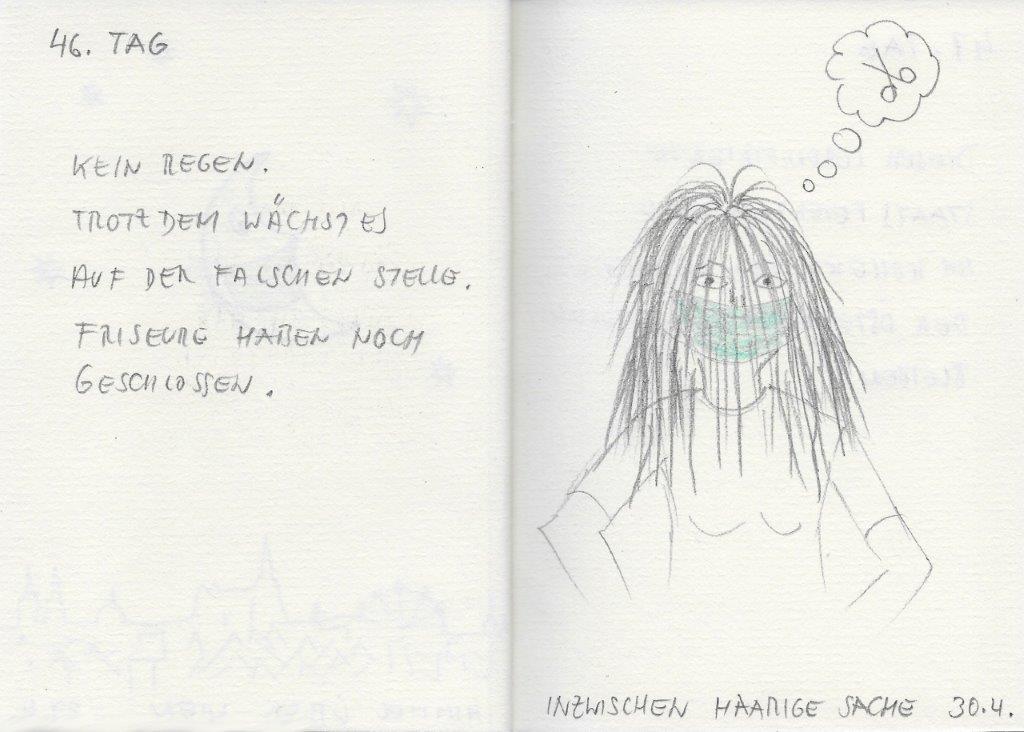 46. TAG
KEIN REGEN.
TROTZDEM WÄCHST ES
AUF DER FALSCHEN STELLE.
FRISEURE HABEN NOCH
GESCHLOSSEN.
INZWISCHEN HAARIGE SACHE 30.4.